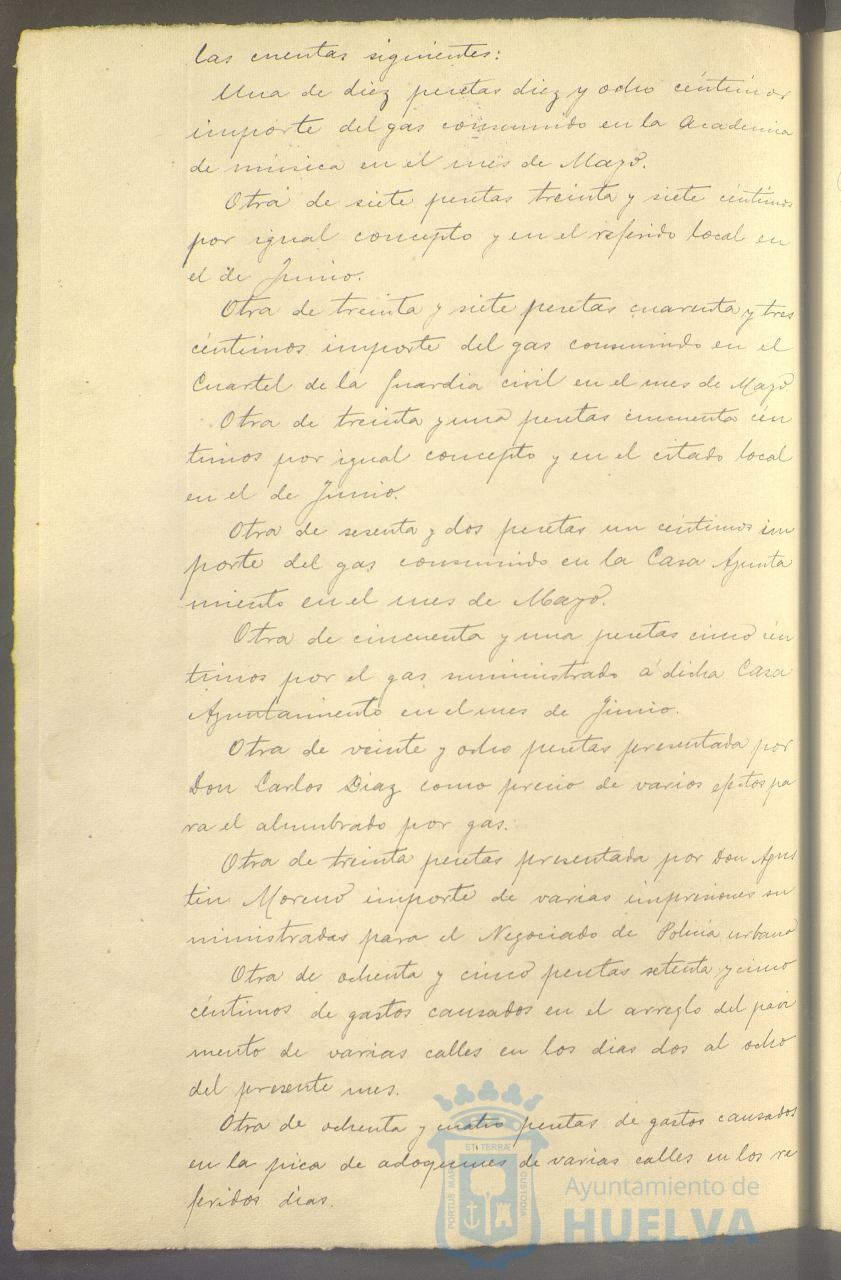 las cuentas siguientes:
Una de diez pesetas diez y ocho céntimos
importe del gas consumido en la Academia
de música en el mes de Mayo.
Otra de siete pesetas treinta y siete céntimos
por igual concepto y en el referido local en
el de Junio.
Otra de treinta y siete pesetas cuarenta y tres
céntimos importe del gas consumido en el
Cuartel de la Guardia civil en el mes de Mayo.
Otra de treinta y una pesetas cincuenta cén
timos por igual concepto y en el citado local
en el de Junio.
Otra de sesenta y dos pesetas un céntimos im
porte del gas consumido en la Casa Ayunta
miento en el mes de Mayo.
Otra de cincuenta y una pesetas cinco cén
timos por el gas suministrado á dicha Casa
Ayuntamiento en el mes de Junio.
Otra de veinte y ocho pesetas presentada por
Don Carlos Diaz como precio de varios efectos pa
ra el alumbrado por gas.
Otra de treinta pesetas presentada por Don Agus
tin Moreno importe de varias impresiones su
ministradas para el Negociado de Policía urbana
Otra de ochenta y cinco pesetas setenta y cinco
céntimos de gastos causados en el arreglo del pavi
mento de varias calles en los dias dos al ocho
del presente mes.
Otra de ochenta y cuatro pesetas de gastos causados
en la pica de adoquines de varias calles en los re
feridos dias.
PORTUS MARIS
ET TERRÆ
CUSTODIA
Ayuntamiento de
HUELVA